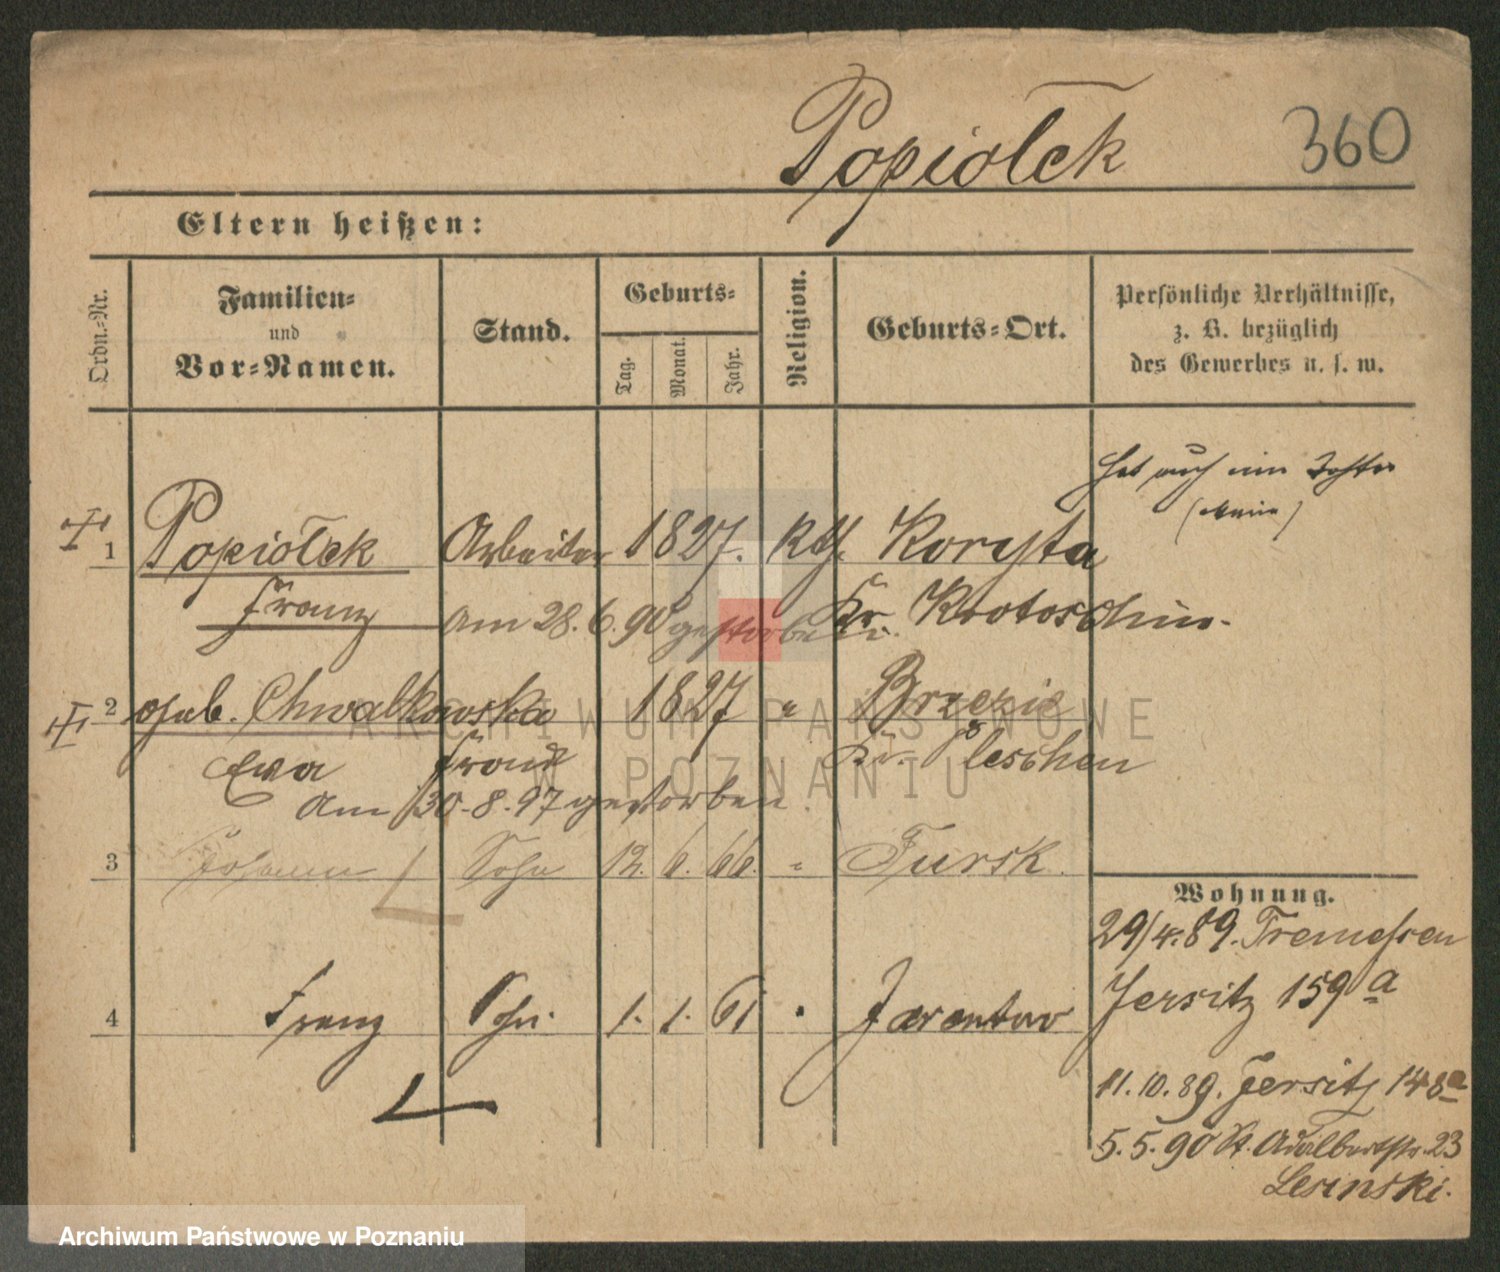 Popiołek 360
Eltern heißen:
Ordn.-Nr. Familien- und Vor-Namen. Stand. Geburts- Tag. Monat. Jahr. Religion. Geburts-Ort. Persönliche Verhältnisse, z. B. bezüglich des Gewerbes u. s. w.
hat auch eine Tochter
1 Popiołek Arbeiter 1827. kth. Koryta
Franz am 28. 6. 90 gestorben. Kr. Krotoschin.
2 geb. Chwalkowska 1827 " Brzezie
Ewa Frau Kr. Pleschen
am 30. 8. 97 gestorben.
3 Johann Sohn 12. 6. 66. " Tursk.
Wohnung.
29/4. 89. Tremessen
4 Franz Sohn. 1. 1. 61 " Jarantow
Jersitz 159 a
11. 10. 89. Jersitz 148a
5. 5. 90 St. Adalbertstr. 23
Lesinski.
ARCHIWUM PAŃSTWOWE
W POZNANIU
Archiwum Państwowe w Poznaniu